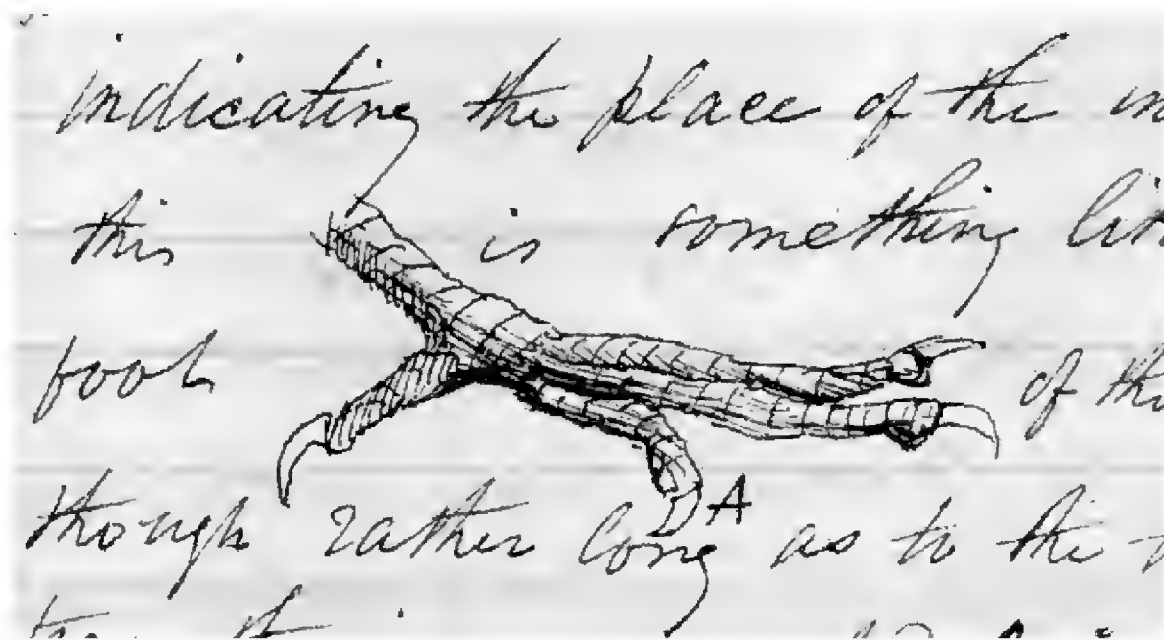 indicating the place of the
this is something
foot of
though rather long as to the
A